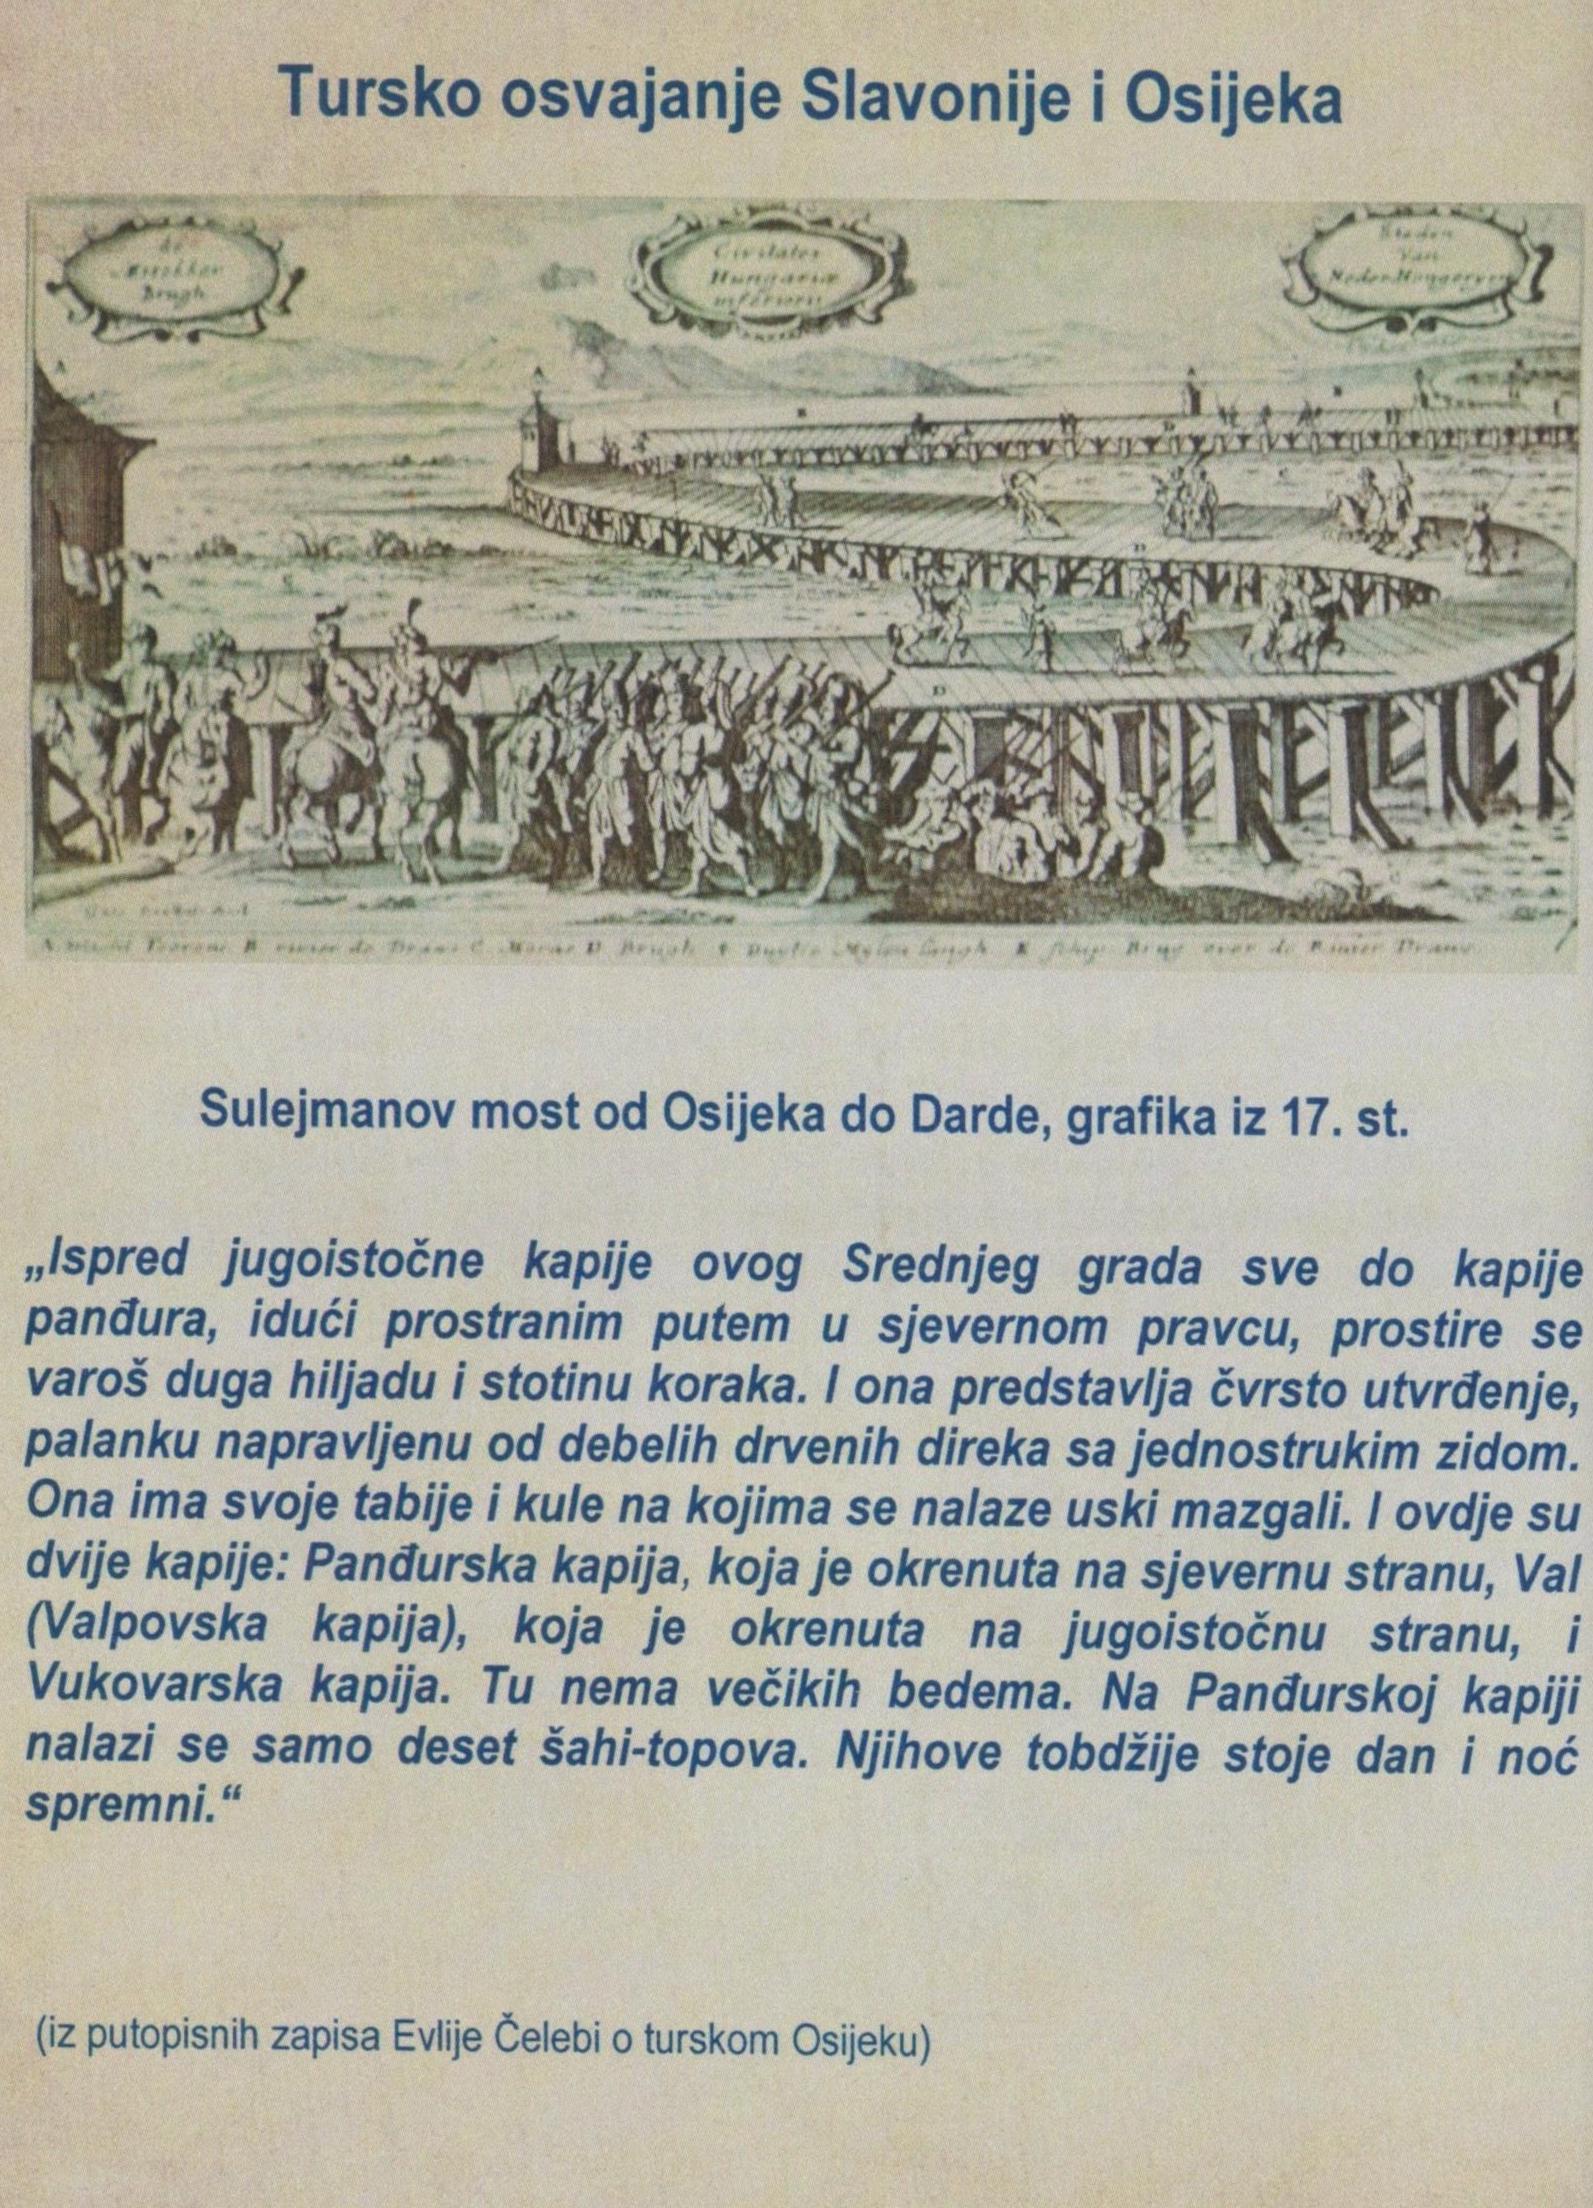 Tursko osvajanje Slavonije i Osijeka
de
Brugh
Civitates
Hungariæ
inferiori
Steden
Van
Neder Hongeryen
D
B
Brugh
Brug over de Rivier
Sulejmanov most od Osijeka do Darde, grafika iz 17. st.
„Ispred jugoistočne kapije ovog Srednjeg grada sve do kapije
panđura, idući prostranim putem u sjevernom pravcu, prostire se
varoš duga hiljadu i stotinu koraka. I ona predstavlja čvrsto utvrđenje,
palanku napravljenu od debelih drvenih direka sa jednostrukim zidom.
Ona ima svoje tabije i kule na kojima se nalaze uski mazgali. I ovdje su
dvije kapije: Panđurska kapija, koja je okrenuta na sjevernu stranu, Val
(Valpovska kapija), koja je okrenuta na jugoistočnu stranu, i
Vukovarska kapija. Tu nema večikih bedema. Na Panđurskoj kapiji
nalazi se samo deset šahi-topova. Njihove tobdžije stoje dan i noć
spremni.“
(iz putopisnih zapisa Evlije Čelebi o turskom Osijeku)